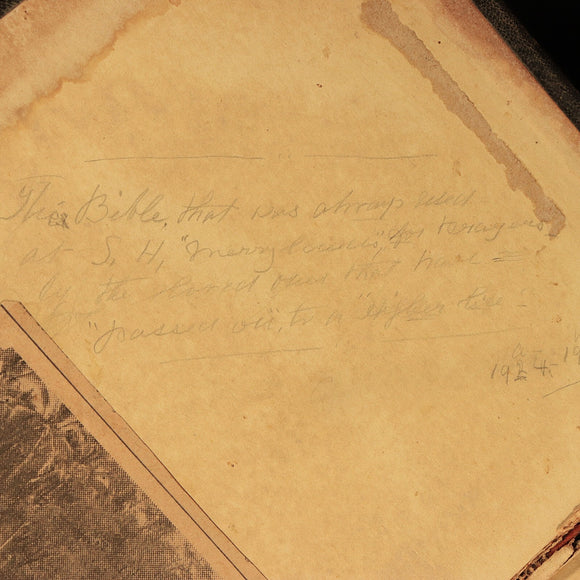 This Bible, that was always used
at S. H, "Merrylands", for prayers
by the loved ones that have =
"passed on", to a "Higher life" -
1954